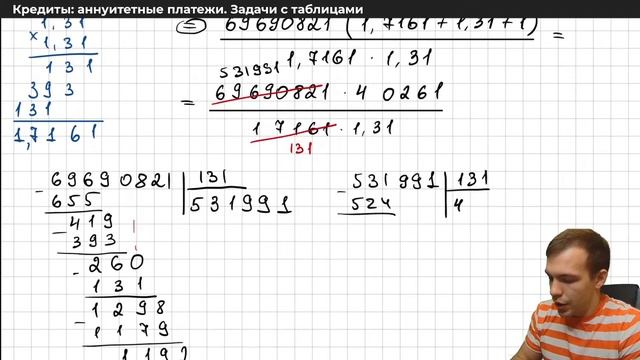 Кредиты: аннуитетные платежи. Задачи с таблицами
1,31
× 1,31
131
393
131
1,7161
= 69690821 (1,7161 + 1,31 + 1) =
1,7161 · 1,31
531931
= 69690821 · 4 0261
17161 · 1,31
131
69690821 | 131
655 | 531991
- 419
393
- 260
131
1298
- 1179
119
- 531991 | 131
524 | 4